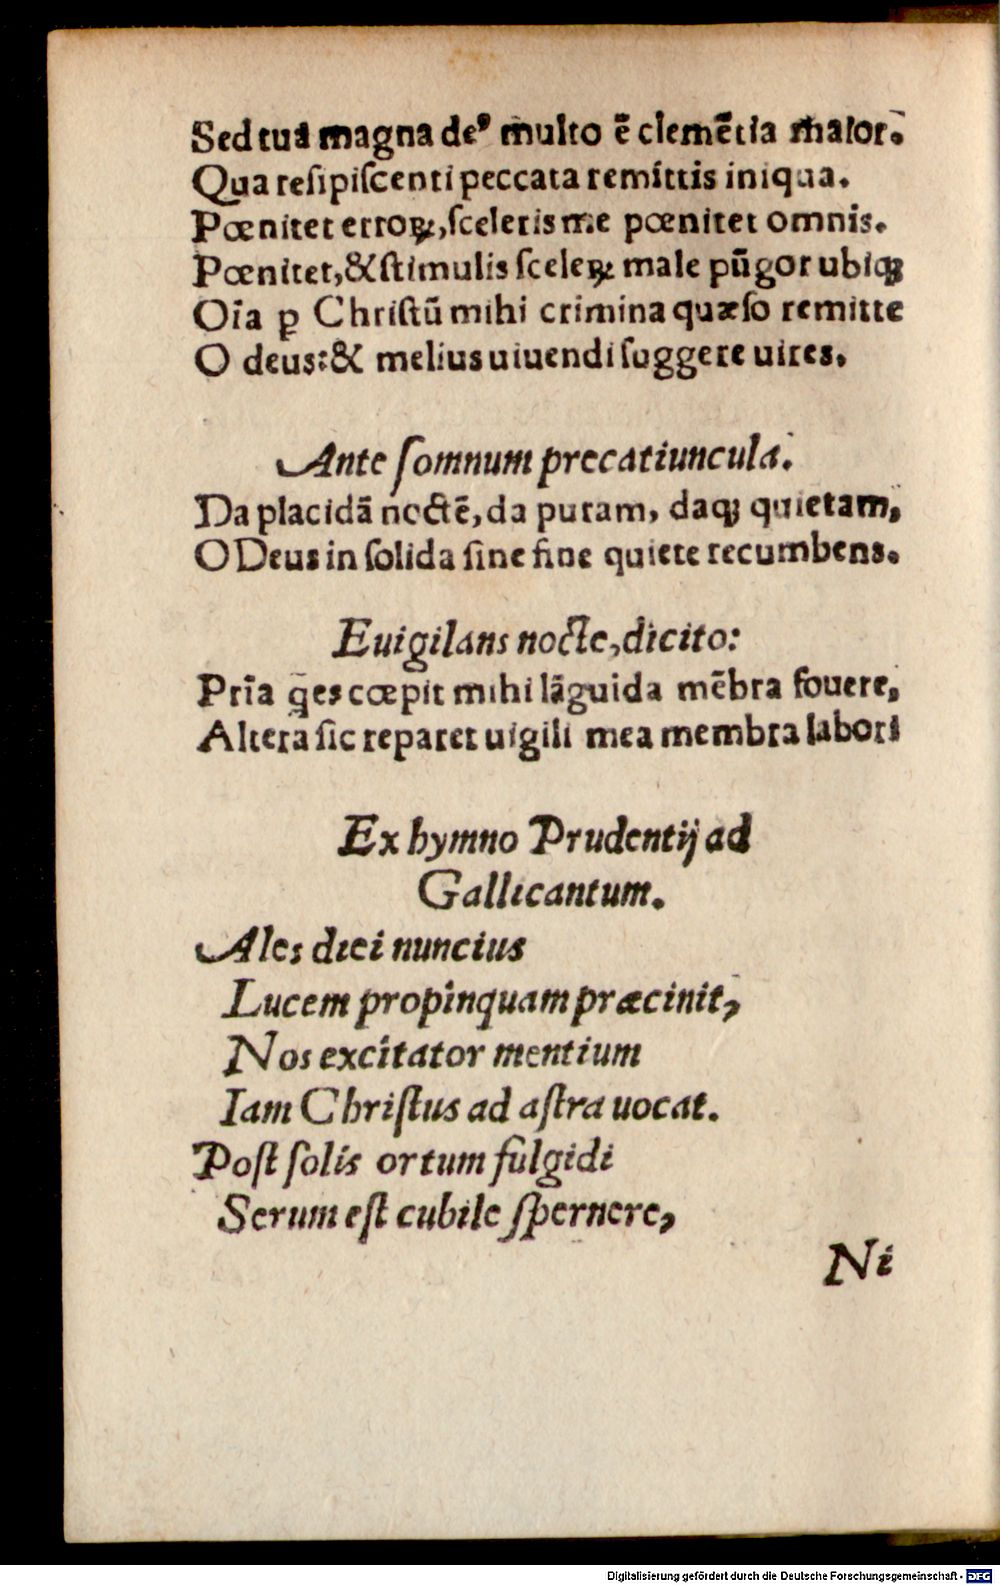 Sed tua magna deꝰ multo ē clemētia maior.
Qua resipiscenti peccata remittis iniqua.
Pœnitet erroꝝ, sceleris me pœnitet omnis.
Pœnitet, & stimulis sceleꝝ male pūgor ubiqꝫ
Oīa ꝑ Christū mihi crimina quæso remitte
O deus: & melius uiuendi suggere uires.
Ante somnum precatiuncula.
Da placidā noctē, da puram, daqꝫ quietam,
O Deus in solida sine fine quiete recumbens.
Euigilans nocte, dicito:
Prīa q̄es cœpit mihi lāguida mēbra fouere,
Altera sic reparet uigili mea membra labori
Ex hymno Prudentij ad
Gallicantum.
Ales diei nuncius
Lucem propinquam præcinit,
Nos excitator mentium
Iam Christus ad astra uocat.
Post solis ortum fulgidi
Serum est cubile spernere,
Ni
Digitalisierung gefördert durch die Deutsche Forschungsgemeinschaft - DFG